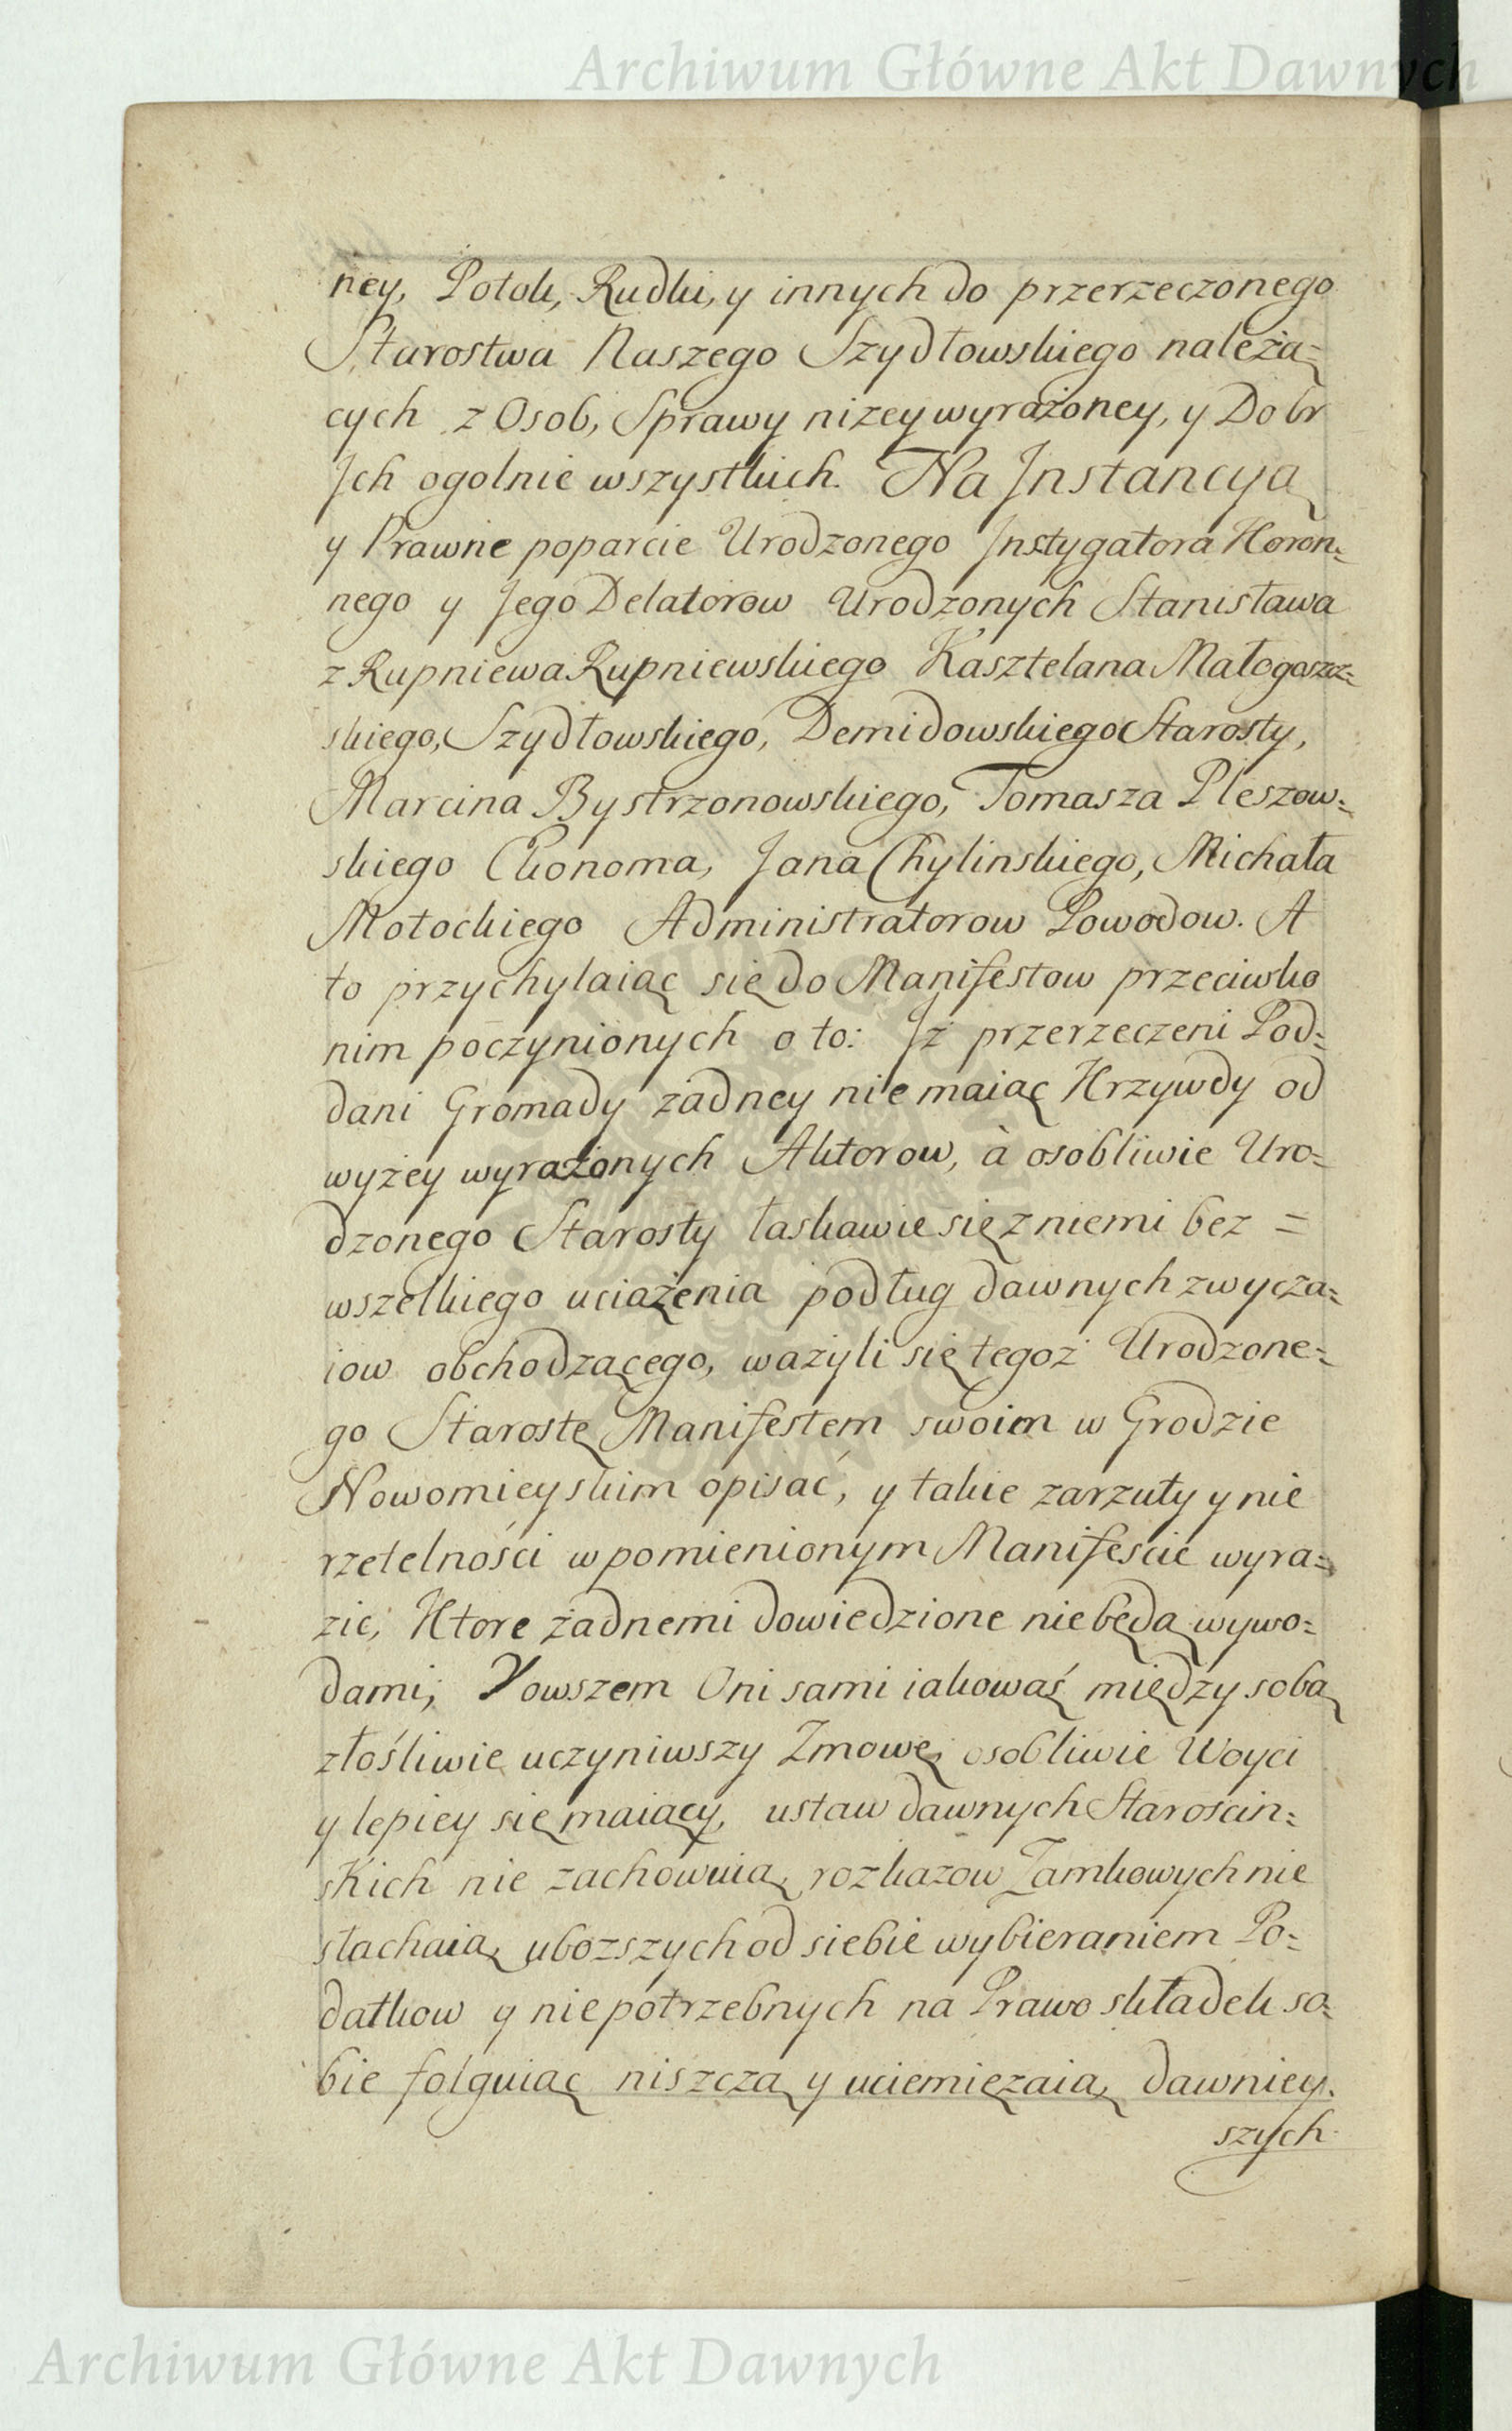 Archiwum Główne Akt Dawnych
ney, Potok, Rudki, y innych do przerzeczonego
Starostwa Naszego Szydłowskiego należą=
cych z Osob, Sprawy nizey wyrażoney, y Dobr
Ich ogolnie wszystkich. Na Instancyą
y Prawne poparcie Urodzonego Instygatora Koron=
nego y Jego Delatorow Urodzonych Stanisława
z Rupniewa Rupniewskiego Kasztelana Małogoszcz=
skiego, Szydłowskiego, Demidowskiego Starosty,
Marcina Bystrzonowskiego, Tomasza Pleszow=
skiego Ekonoma, Jana Chylinskiego, Michała
Motockiego Administratorow Powodow. A
to przychylaiąc się do Manifestow przeciwko
nim poczynionych o to: Iż przerzeczeni Pod=
dani Gromady żadney nie maiąc Krzywdy od
wyżey wyrażonych Aktorow, à osobliwie Uro=
dzonego Starosty łaskawie się z niemi bez =
wszelkiego uciążenia podług dawnych zwycza=
iow obchodzącego, ważyli się tegoż Urodzone=
go Starostę Manifestem swoim w Grodzie
Nowomieyskim opisać, y takie zarzuty y nie
rzetelności w pomienionym Manifeście wyra=
zic, Ktore żadnemi dowiedzione nie będą wywo=
dami, Y owszem Oni sami iakowąś między sobą
złośliwie uczyniwszy Zmowę, osobliwie Woyci
y lepiey się maiący, ustaw dawnych Starościn=
skich nie zachowuią, rozkazow Zamkowych nie
słachaią, ubozszych od siebie wybieraniem Po=
datkow y niepotrzebnych na Prawo składek so=
bie folguiąc niszczą y uciemięzaią, dawniey.
szych.
Archiwum Główne Akt Dawnych